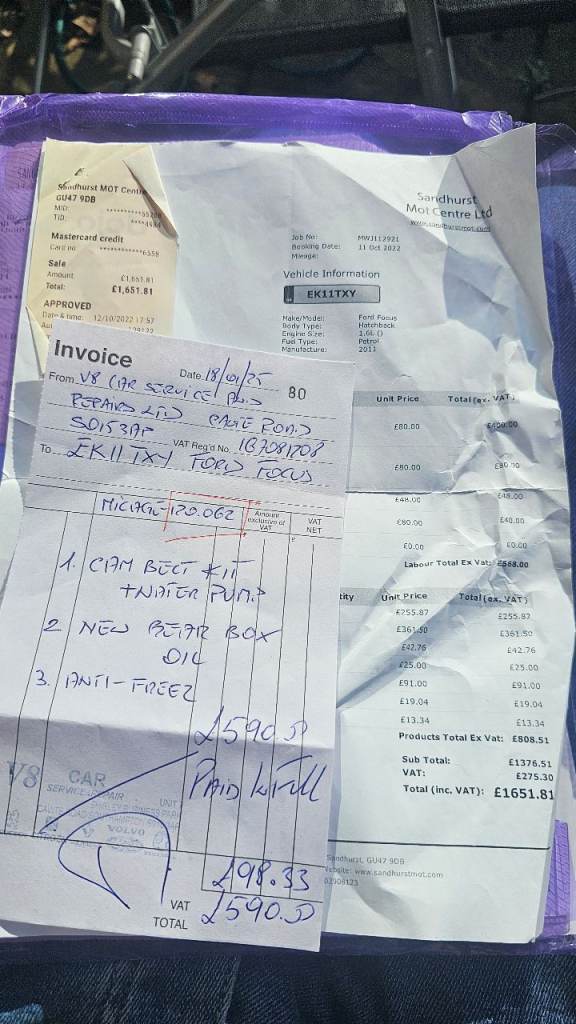 Sandhurst MOT Centre
GU47 9DB
MID:
TID:
Mastercard credit
Sale
Amount £1,651.81
Total: £1,651.81
APPROVED
Date & time: 12/10/2022 17:57
Sandhurst
Mot Centre Ltd
www.sandhurstmot.com
Job No: MWJ112921
Booking Date: 11 Oct 2022
Mileage:
Vehicle Information
EK11TXY
Make/Model: Ford Focus
Body Type: Hatchback
Engine Size: 1.6L ()
Fuel Type: Petrol
Manufacture: 2011
Unit Price Total (ex. VAT)
£80.00 £400.00
£80.00 £80.00
£48.00 £48.00
£80.00 £40.00
£0.00 £0.00
Labour Total Ex Vat: £568.00
Unit Price Total (ex. VAT)
£255.87 £255.87
£361.50 £361.50
£42.76 £42.76
£25.00 £25.00
£91.00 £91.00
£19.04 £19.04
£13.34 £13.34
Products Total Ex Vat: £808.51
Sub Total: £1376.51
VAT: £275.30
Total (inc. VAT): £1651.81
Sandhurst, GU47 9DB
Website: www.sandhurstmot.com
Invoice
Date 18/01/25
80
From V8 CAR SERVICE AND
REPAIRS LTD
SO153AP VAT Reg'd No.
To EK11 TXY FORD FOCUS
MILAGE - 120.062
Amount exclusive of VAT
£
VAT NET
1. CAM BELT KIT
+ WATER PUMP
2 NEW BOX
OIL
3. ANTI-FREEZ
£590.00
PAID In Full
V8 CAR
UNIT
VOLVO
£98.33
VAT
TOTAL £590.00